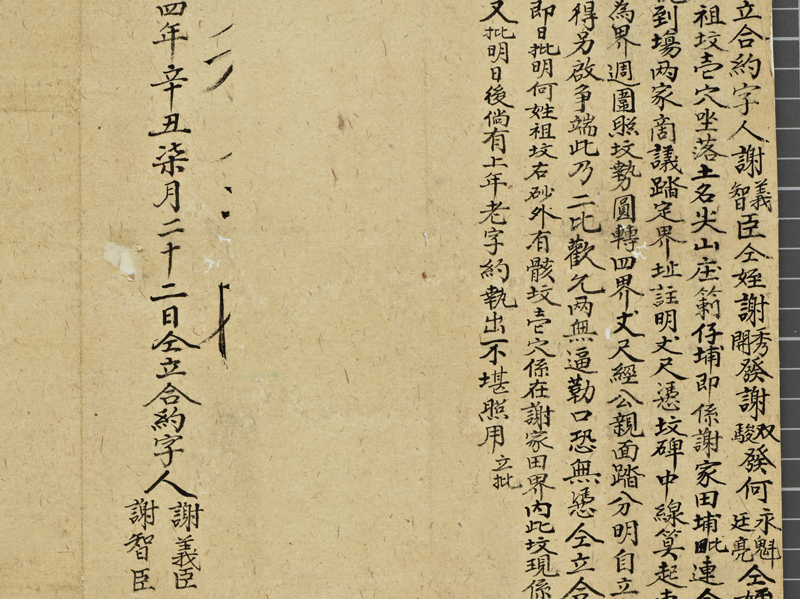 立合約字人謝義智臣仝姪謝秀開發謝双駿發何永廷魁亮仝
祖坟壱穴坐落土名尖山庄箣仔埔即係謝家田埔毗連
到塲两家啇議踏定界址註明丈尺憑坟碑中線算起
為界週圍照坟勢圓轉四界丈尺經公親面踏分明自立
得另啟争端此乃二比歡允两無逼勒口恐無憑仝立合
即日批明何姓祖坟右砂外有骸坟壱穴係在謝家田界内此坟現係
又批明日後倘有上年老字約執出不堪照用 立批
四年辛丑柒月二十二日仝立合約字人
謝義臣
謝智臣